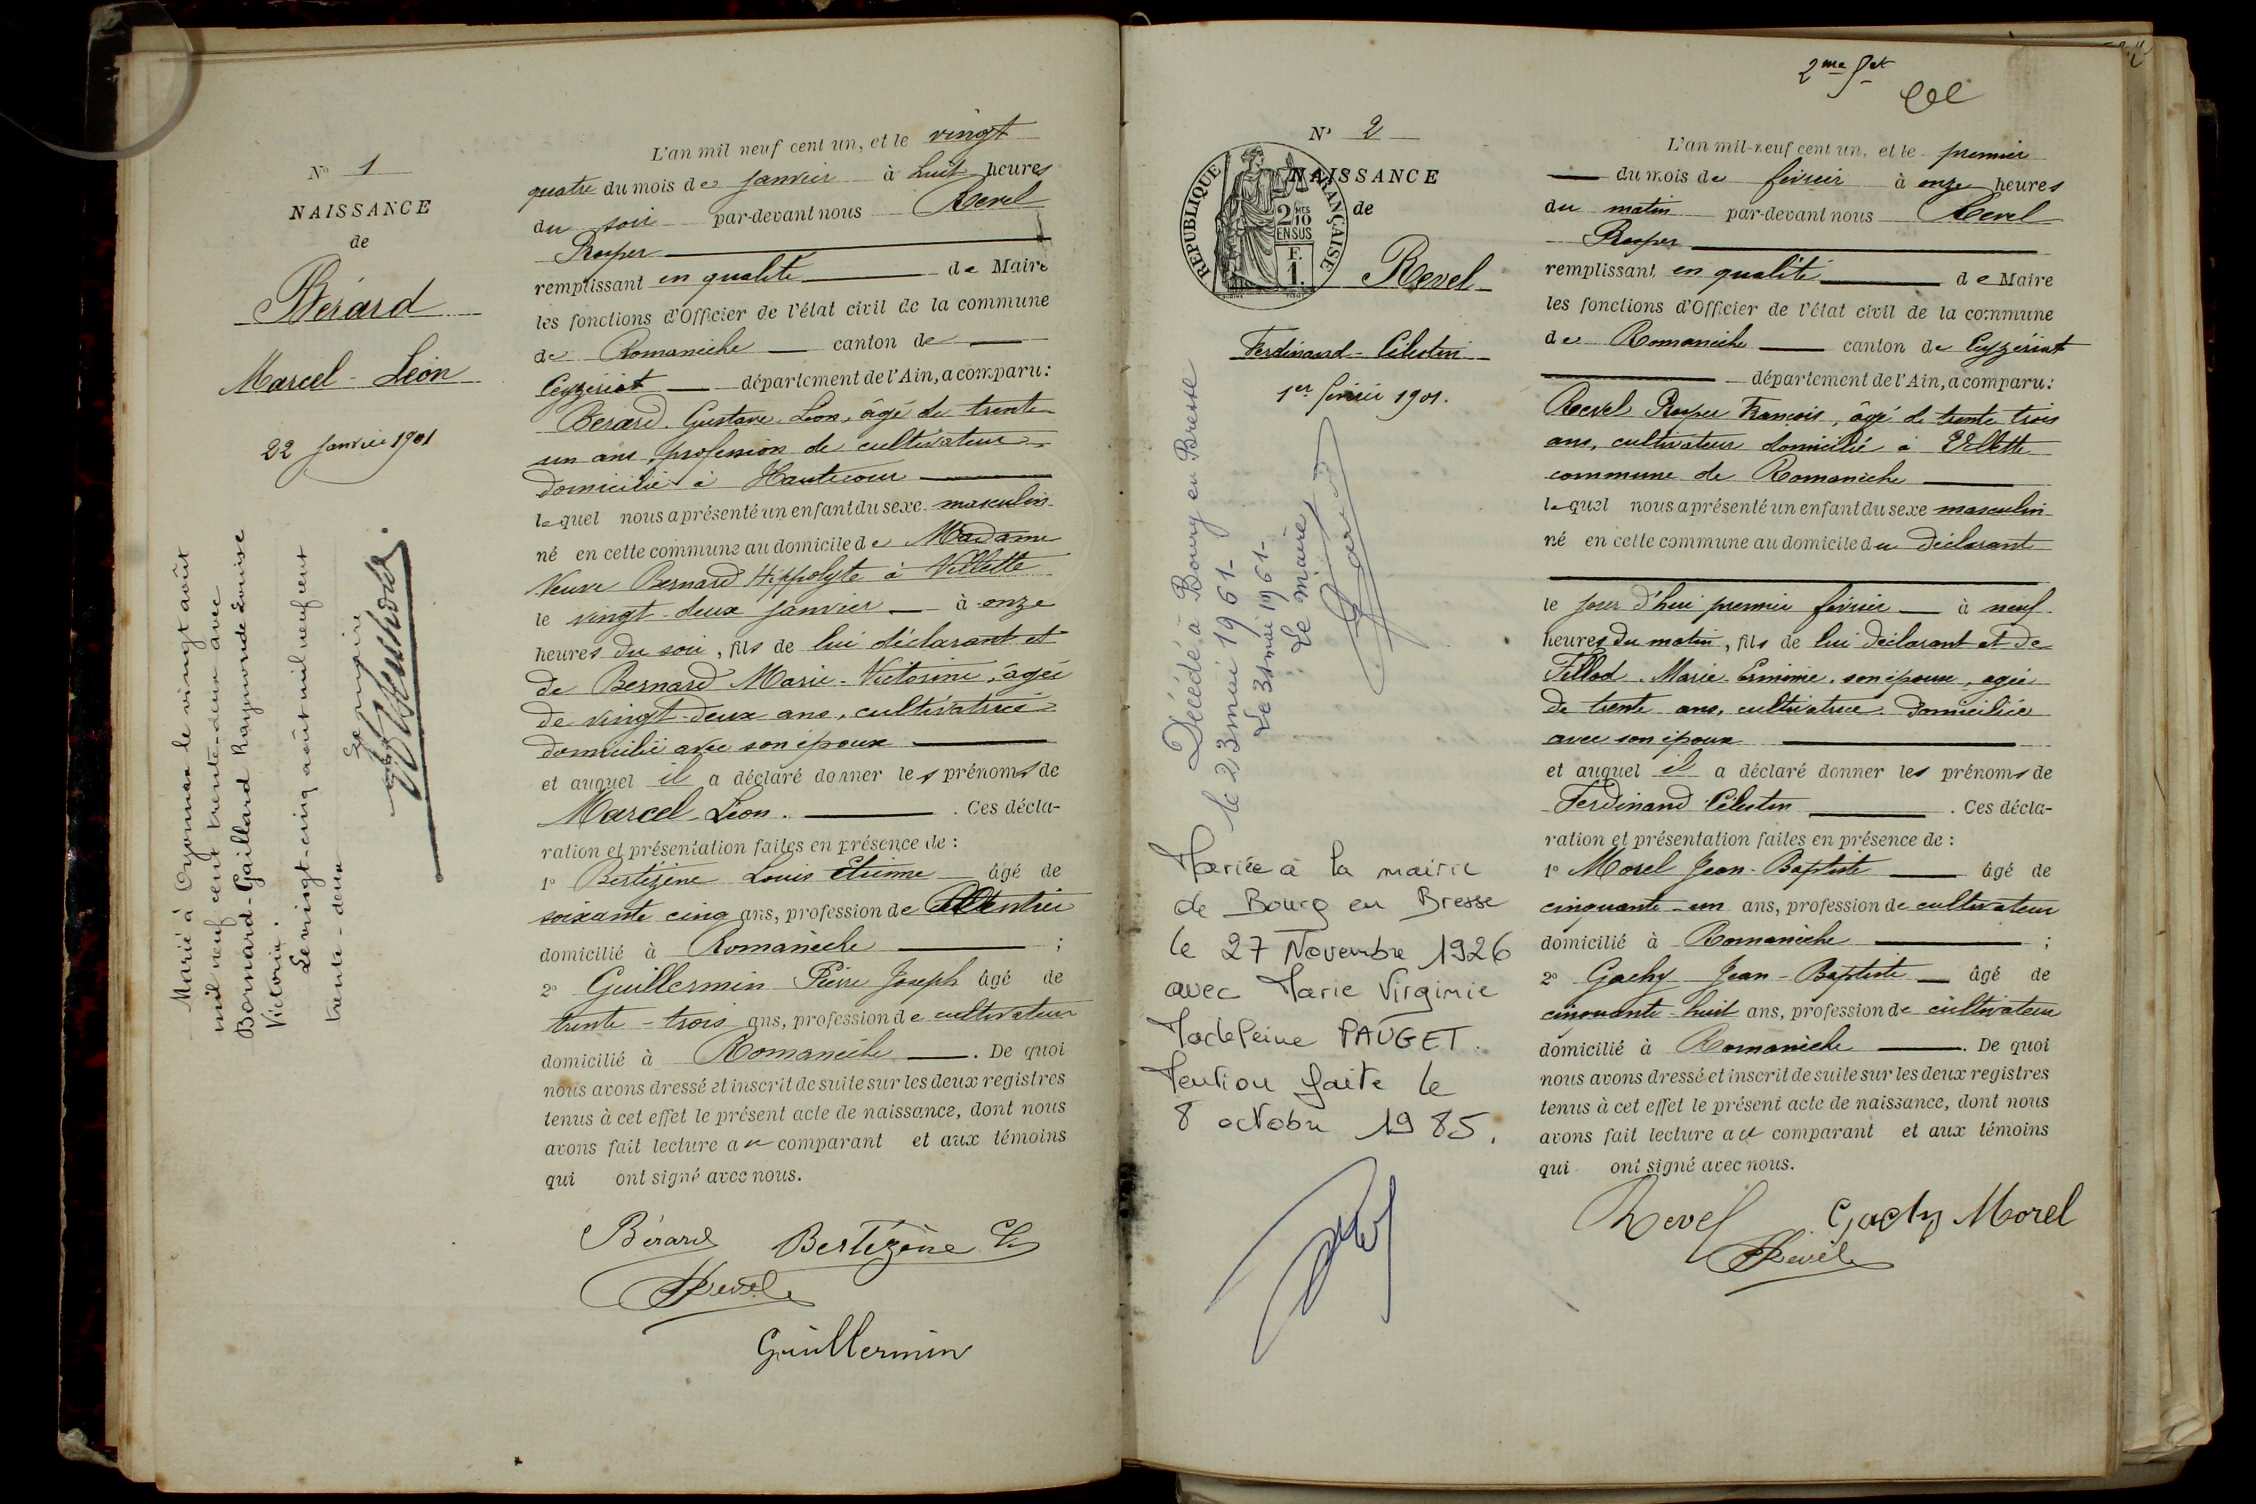 N° 1
NAISSANCE
de
Bérard
Marcel-Léon
22 janvier 1901
Marié à Oyonnax le vingt août
mil neuf cent trente-deux avec
Bernard-Gaillard Raymonde Louise
Victorine.
Le vingt-cinq août mil neuf cent
trente-deux
Le maire
L'an mil neuf cent un, et le vingt
quatre du mois de janvier à huit heures
du soir par-devant nous Revel
Prosper
remplissant en qualité de Maire
les fonctions d'Officier de l'état civil de la commune
de Romanèche canton de
Ceyzériat département de l'Ain, a comparu:
Bérard Gustave Léon, âgé de trente
un ans, profession de cultivateur
domicilié à Hautecour
lequel nous a présenté un enfant du sexe masculin
né en cette commune au domicile de Madame
Veuve Bernard Hippolyte à Villette
le vingt-deux janvier à onze
heures du soir, fils de lui déclarant et
de Bernard Marie-Victorine, âgée
de vingt-deux ans, cultivatrice
domicilié avec son époux
et auquel il a déclaré donner les prénoms de
Marcel Léon. Ces décla-
ration et présentation faites en présence de:
1° Bertézène Louis Etienne âgé de
soixante cinq ans, profession de Rentier
domicilié à Romanèche ;
2° Guillermin Pierre Joseph âgé de
trente-trois ans, profession de cultivateur
domicilié à Romanèche. De quoi
nous avons dressé et inscrit de suite sur les deux registres
tenus à cet effet le présent acte de naissance, dont nous
avons fait lecture au comparant et aux témoins
qui ont signé avec nous.
Bérard Bertézène
Revel
Guillermin
2me
N° 2
NAISSANCE
de
RÉPUBLIQUE FRANÇAISE
2/10MES
EN SUS
1F.
Revel
Ferdinand-Célestin
1er février 1901.
Décédé à Bourg en Bresse
le 23 mai 1961-
Le 31 mai 1961-
Le maire
Mariée à la mairie
de Bourg en Bresse
le 27 Novembre 1926
avec Marie Virginie
Madeleine PAUGET.
Mention faite le
8 octobre 1985.
L'an mil-neuf cent un, et le premier
du mois de février à onze heures
du matin par-devant nous Revel
Prosper
remplissant en qualité de Maire
les fonctions d'Officier de l'état civil de la commune
de Romanèche canton de Ceyzériat
département de l'Ain, a comparu:
Revel Prosper François, âgé de trente trois
ans, cultivateur domicilié à Villette
commune de Romanèche
lequel nous a présenté un enfant du sexe masculin
né en cette commune au domicile du déclarant
le jour d'hui premier février à neuf
heures du matin, fils de lui déclarant et de
Fillod Marie Erminie, son épouse, agée
de trente ans, cultivatrice domiciliée
avec son époux
et auquel il a déclaré donner les prénoms de
Ferdinand Célestin. Ces décla-
ration et présentation faites en présence de:
1° Morel Jean-Baptiste âgé de
cinquante-un ans, profession de cultivateur
domicilié à Romanèche ;
2° Gachy Jean-Baptiste âgé de
cinquante-huit ans, profession de cultivateur
domicilié à Romanèche. De quoi
nous avons dressé et inscrit de suite sur les deux registres
tenus à cet effet le présent acte de naissance, dont nous
avons fait lecture au comparant et aux témoins
qui ont signé avec nous.
Revel Gachy Morel
Revel